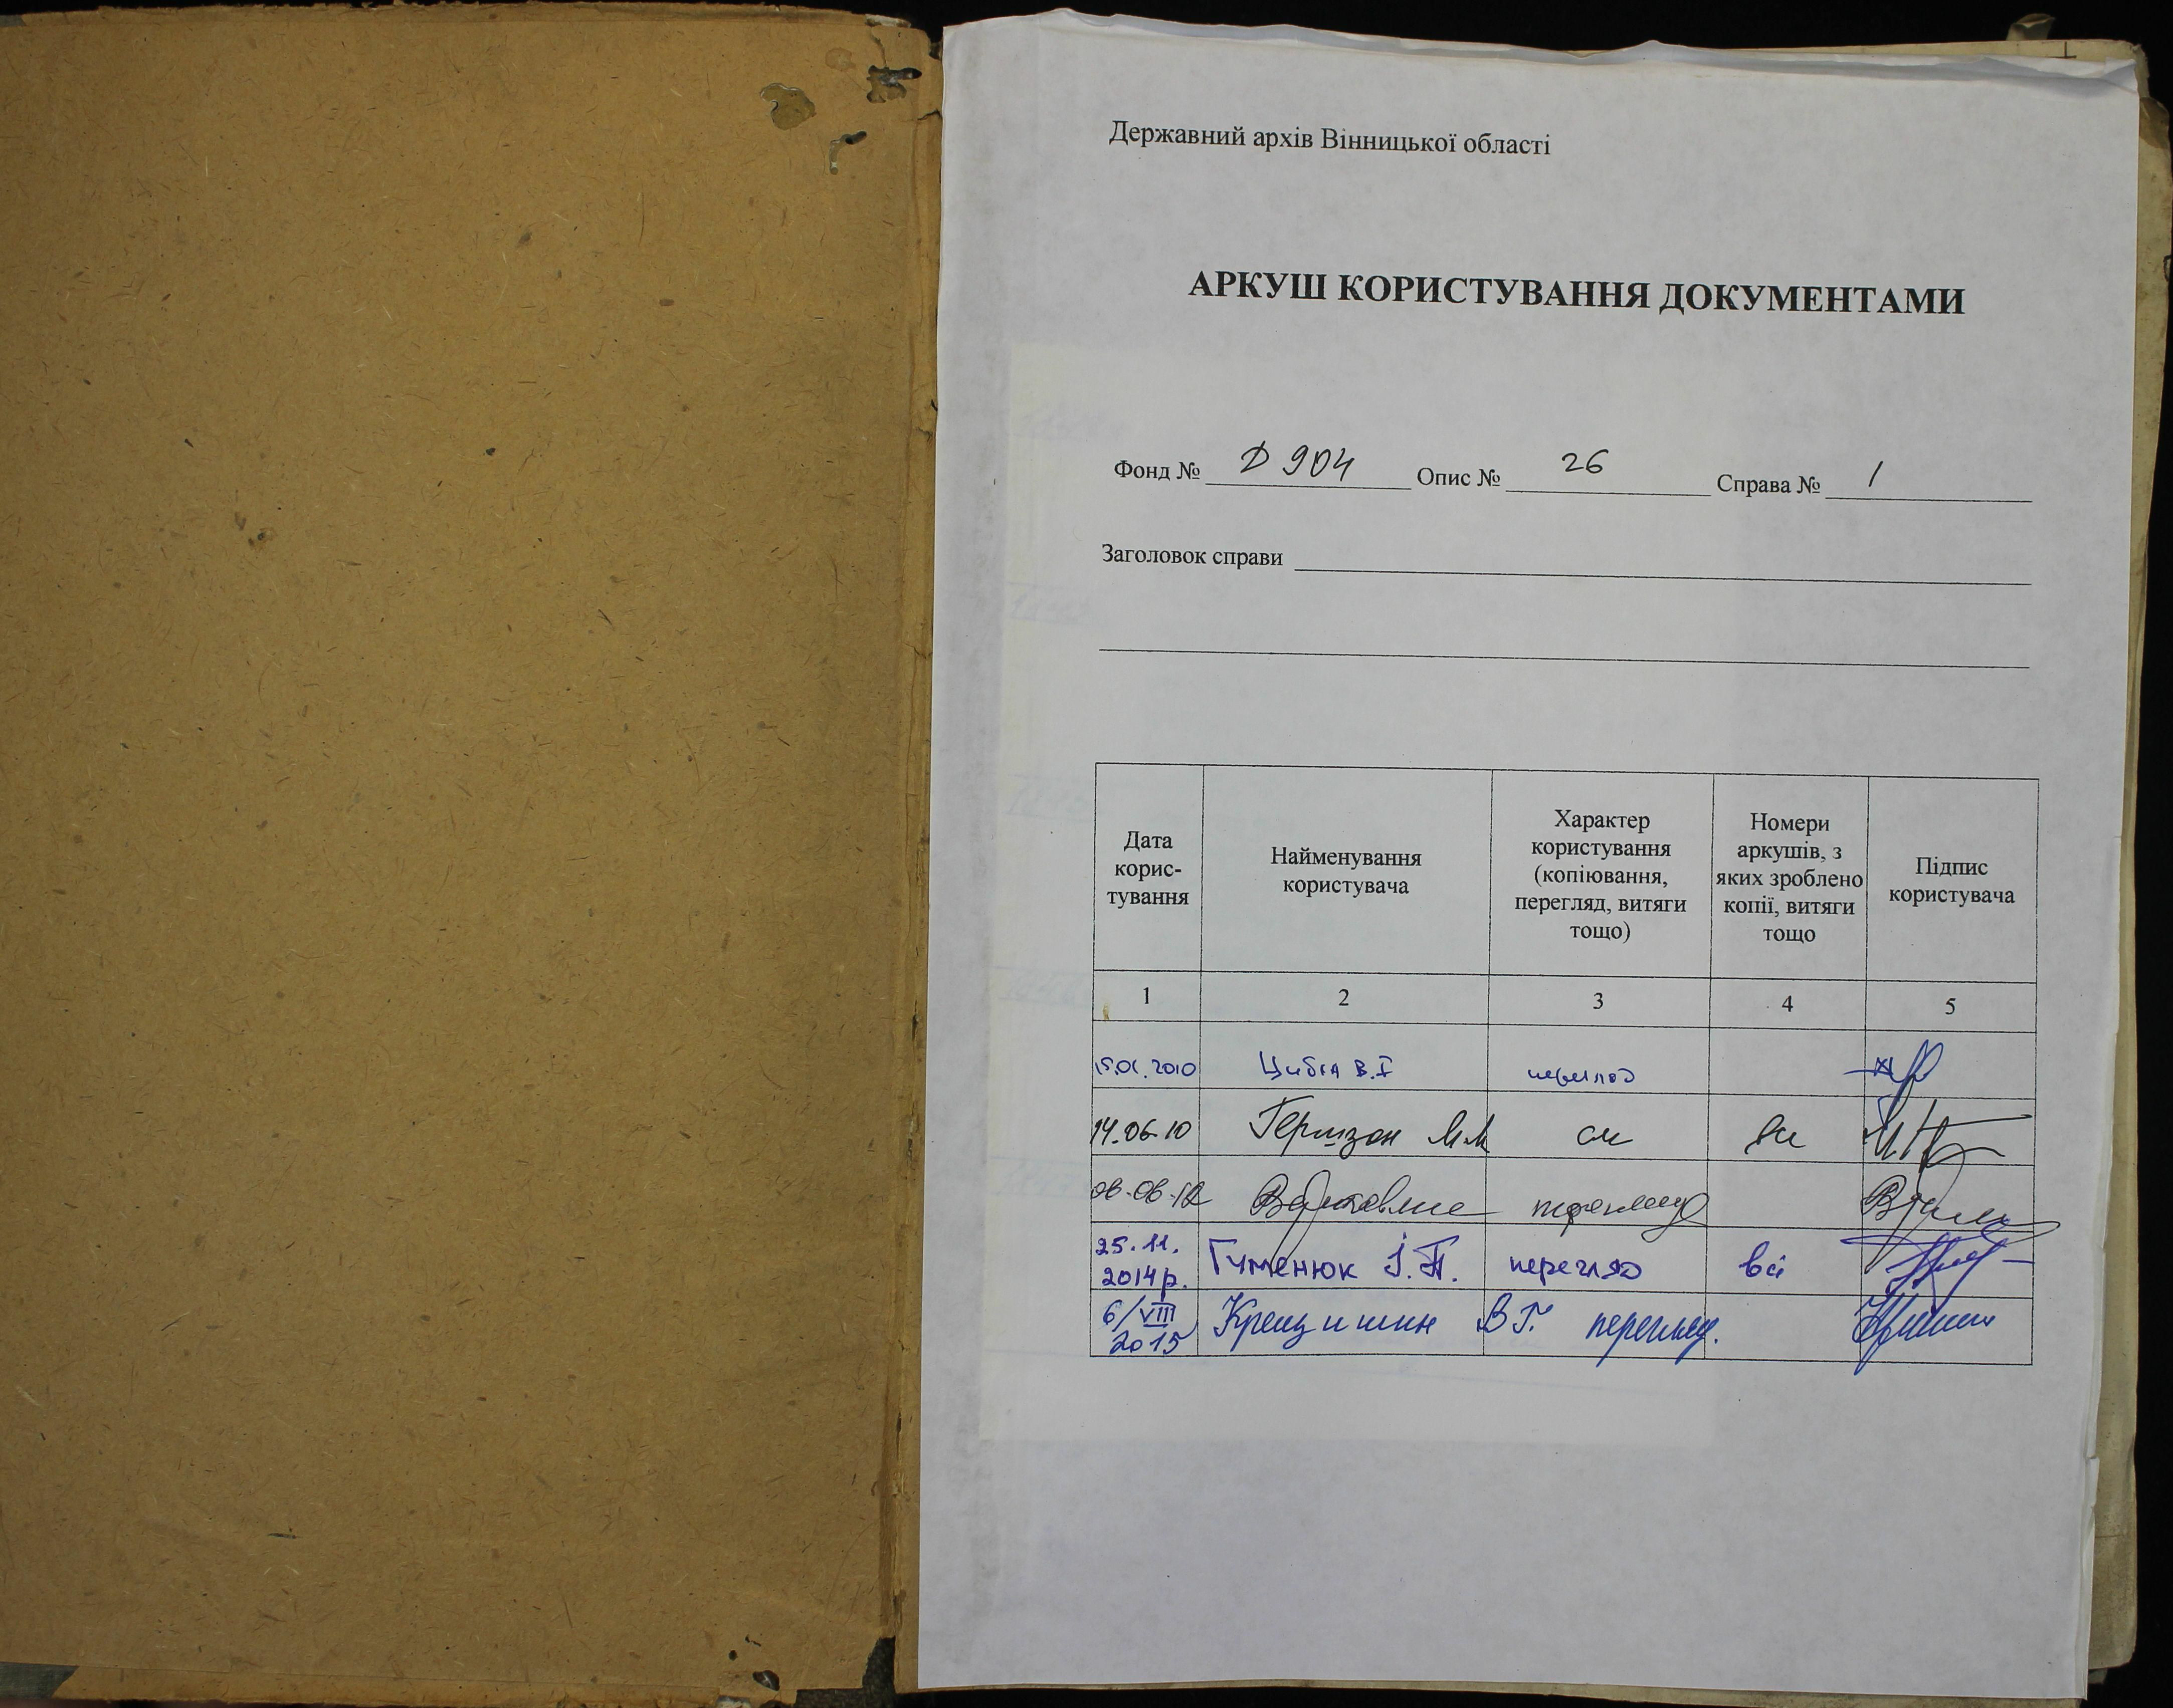 Державний архів Вінницької області
АРКУШ КОРИСТУВАННЯ ДОКУМЕНТАМИ
Фонд № Д 904 Опис № 26 Справа № 1
Заголовок справи
Дата
корис-
тування
Найменування
користувача
Характер
користування
(копіювання,
перегляд, витяги
тощо)
Номери
аркушів, з
яких зроблено
копії, витяги
тощо
Підпис
користувача
1 2 3 4 5
15.01.2010 В.І
14.06.10 Гершзон М.М
08.08.12
25.11.
2014р. Гуменюк І.П. перегляд всі
6/VIII
2015 Крещишин В Г. перегляд.